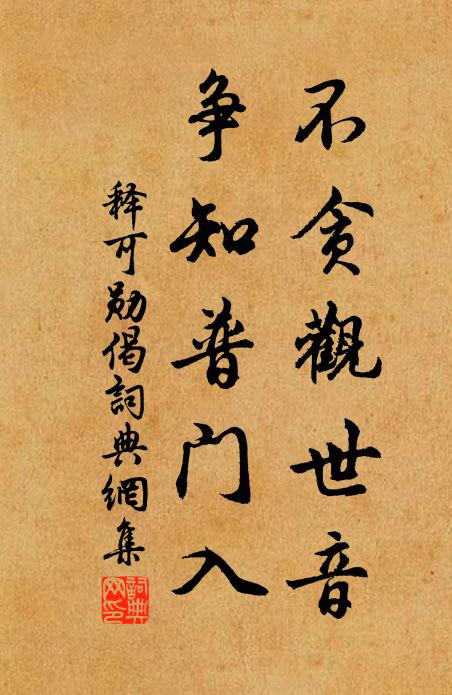 不貪觀世音
争知普门入
释可勋偈詞典網集
詞典网印